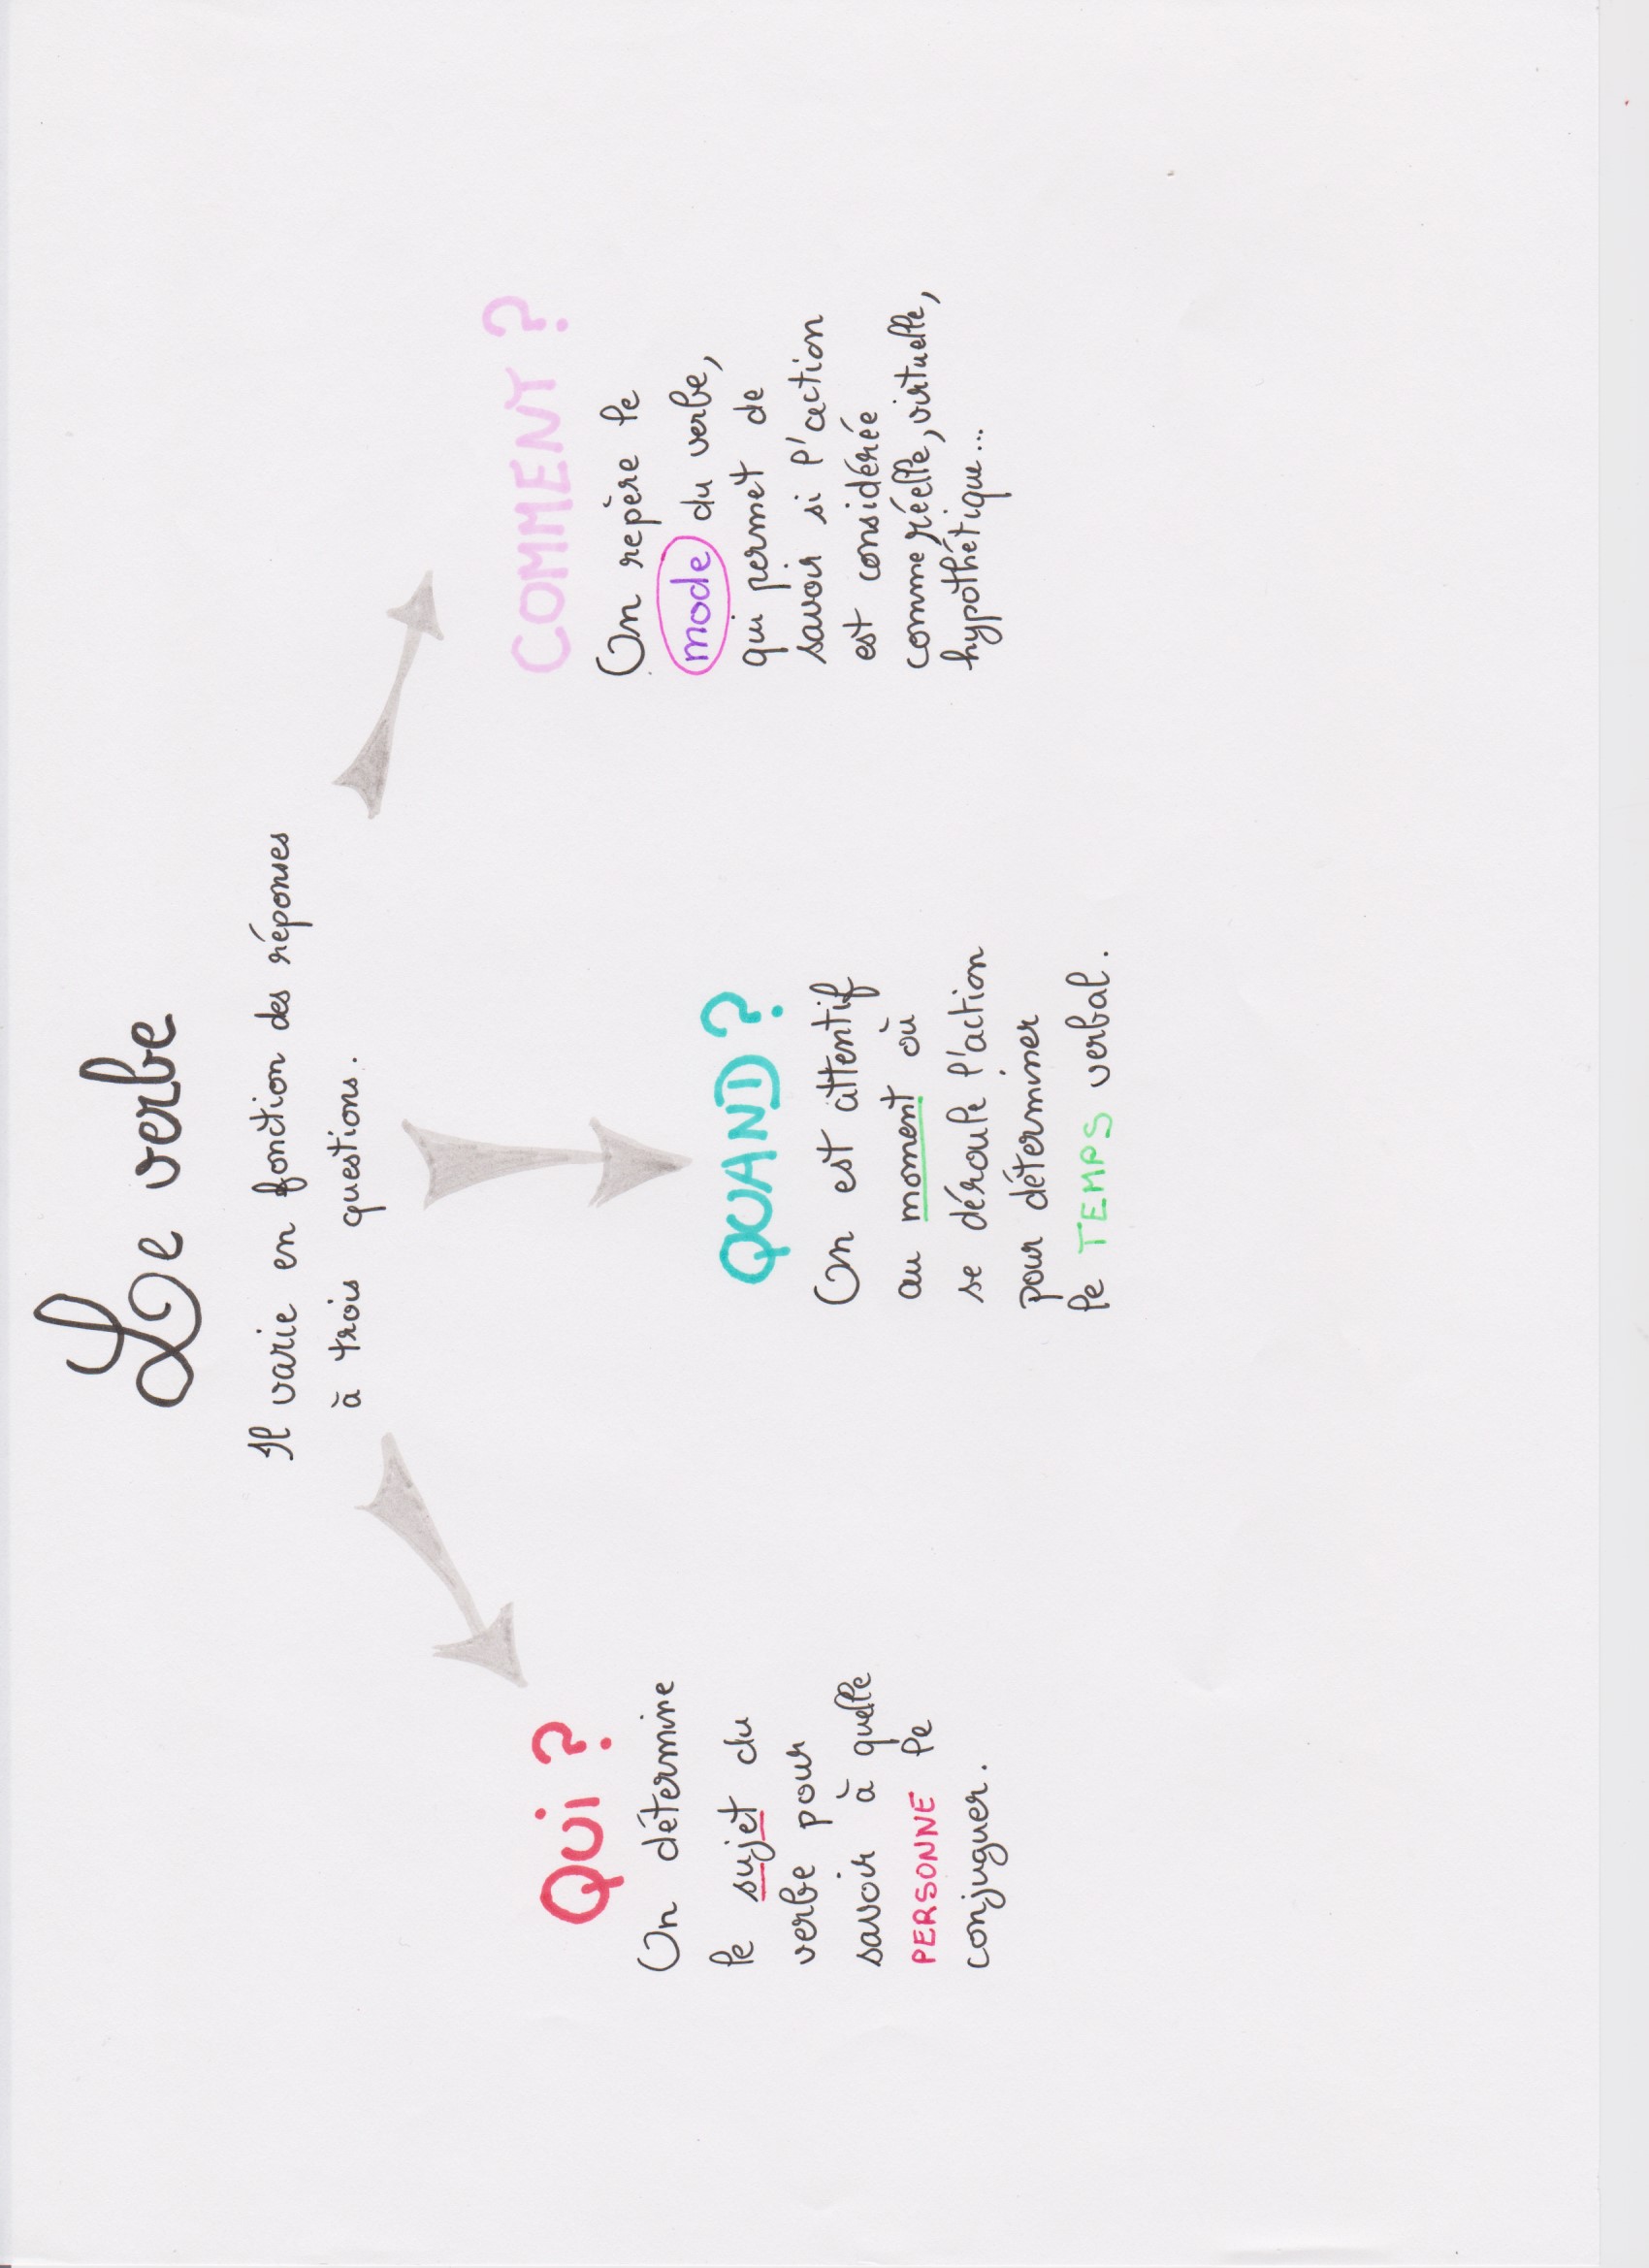 Le verbe
Il varie en fonction des réponses
à trois questions.
Qui ?
On détermine
le sujet du
verbe pour
savoir à quelle
PERSONNE le
conjuguer.
QUAND ?
On est attentif
au moment où
se déroule l'action
pour déterminer
le TEMPS verbal.
COMMENT ?
On repère le
mode du verbe,
qui permet de
savoir si l'action
est considérée
comme réelle, virtuelle,
hypothétique...